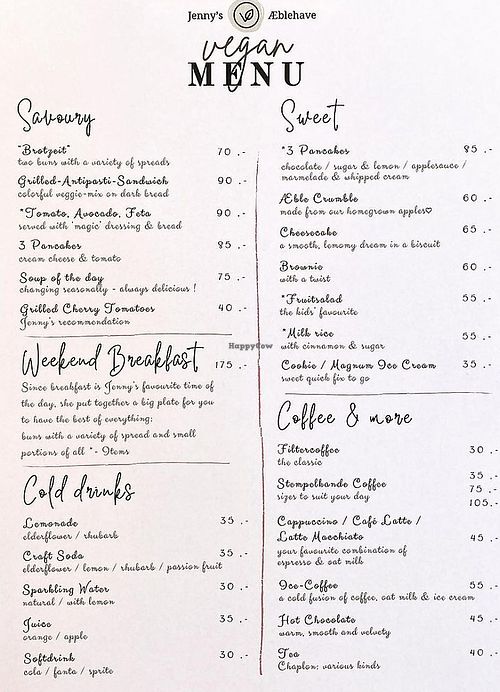 Jenny's Æblehave
vegan
MENU
Savoury
"Brotzeit" 70 .-
two buns with a variety of spreads
Grilled-Antipasti-Sandwich 90 .-
colorful veggie-mix on dark bread
*Tomato, Avocado, Feta 90 .-
served with 'magic' dressing & bread
3 Pancakes 85 .-
cream cheese & tomato
Soup of the day 75 .-
changing seasonally - always delicious !
Grilled Cherry Tomatoes 40 .-
Jenny's recommendation
Weekend Breakfast 175 .-
Since breakfast is Jenny's favourite time of
the day, she put together a big plate for you
to have the best of everything:
buns with a variety of spread and small
portions of all * - Items
Cold drinks
Lemonade 35 .-
elderflower / rhubarb
Craft Soda 35 .-
elderflower / lemon / rhubarb / passion fruit
Sparkling Water 30 .-
natural / with lemon
Juice 35 .-
orange / apple
Softdrink 30 .-
cola / fanta / sprite
Sweet
*3 Pancakes 85 .-
chocolate / sugar & lemon / applesauce /
marmelade & whipped cream
Æble Crumble 60 .-
made from our homegrown apples♡
Cheesecake 65 .-
a smooth, lemony dream in a biscuit
Brownie 60 .-
with a twist
*Fruitsalad 55 .-
the kids' favourite
*Milk rice 55 .-
with cinnamon & sugar
Cookie / Magnum Ice Cream 35 .-
sweet quick fix to go
Coffee & more
Filtercoffee 30 .-
the classic
Stempelkande Coffee 35 .-
sizes to suit your day 75 .-
105.-
Cappuccino / Café Latte /
Latte Macchiato 45 .-
your favourite combination of
espresso & oat milk
Ice-Coffee 55 .-
a cold fusion of coffee, oat milk & ice cream
Hot Chocolate 45 .-
warm, smooth and velvety
Tea 40 .-
Chaplon: various kinds
HappyCow